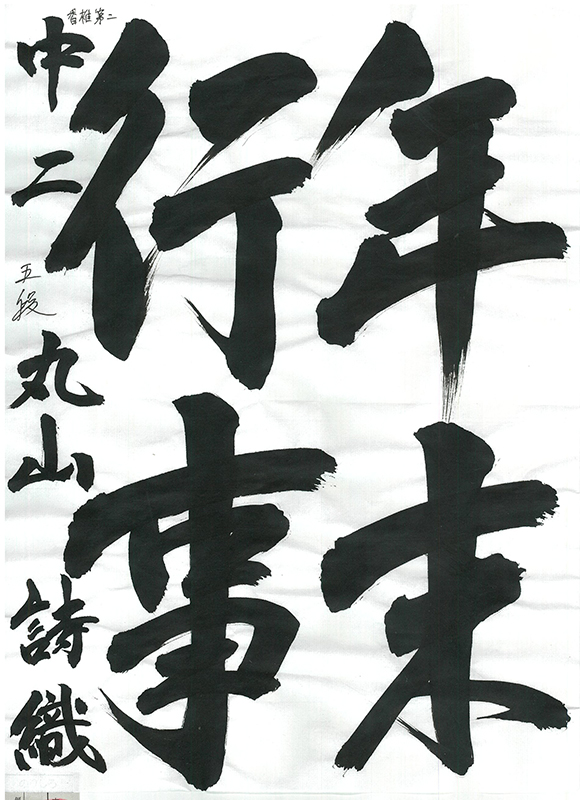 年末
行事
香椎第二
中二 五段 丸山詩織